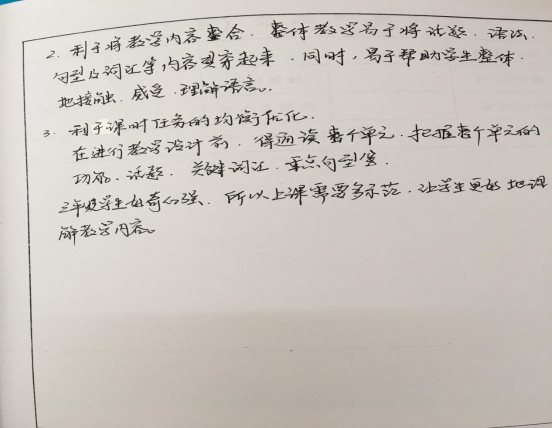 2. 利于将教学内容整合. 整体教学易于将话题、语法、
句型及词汇等内容贯穿起来. 同时, 易于帮助学生整体
地接触、感受、理解语言。
3. 利于课时任务的均衡优化.
在进行教学设计前, 得通读整个单元. 把握整个单元的
功能、话题、关键词汇、重点句型等.
三年级学生好奇心强、所以上课需要多示范, 让学生更好地理
解教学内容。